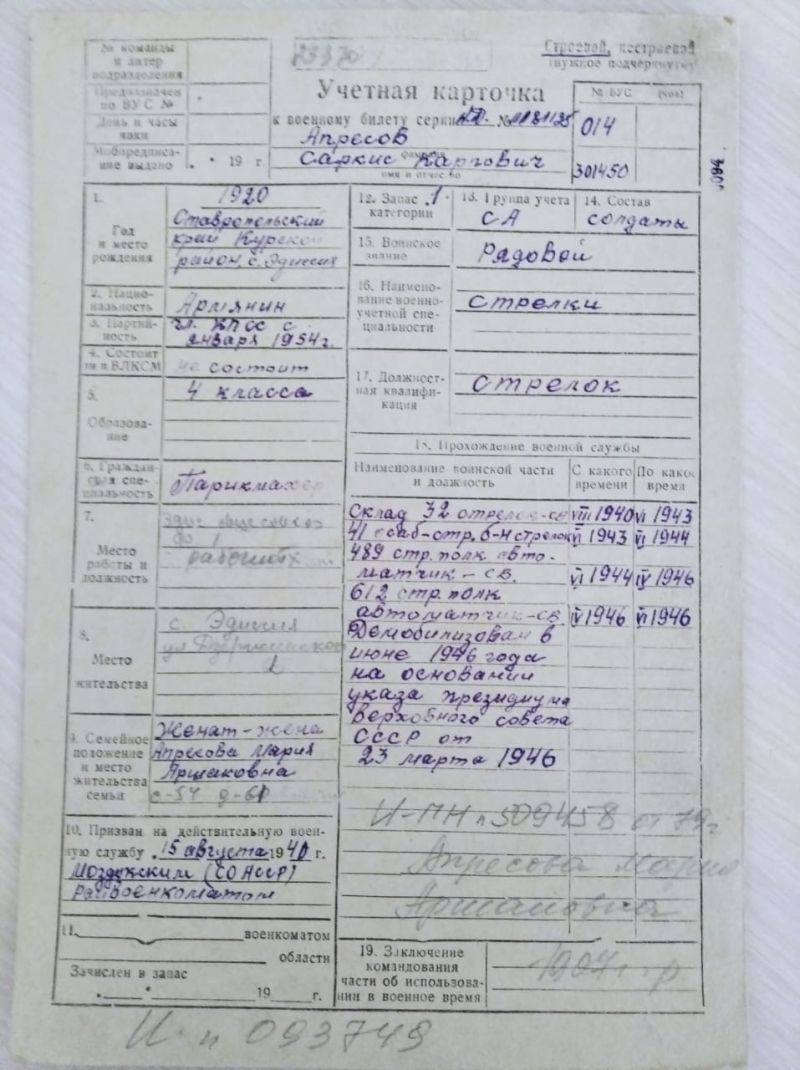 № команды
и литер
подразделения
Предназначен
по ВУС №
День и часы
явки
Мобпредписа-
ние выдано . . 19 г.
23370
Строевой, нестроевой
(нужное подчеркнуть)
Учетная карточка
к военному билету серии №
Апресов
фамилия
Саркис Каргович
имя и отчество
№ ВУС (код)
014
301450
1.
Год
и место
рождения
1920
Ставропольский
край Курской
район, с. Эдиссия
2. Нацио-
нальность
Армянин
3. Партий-
ность
чл. КПСС с
января 1954г.
4. Состоит
ли в ВЛКСМ
не состоит
5.
Образова-
ние
4 класса
6. Граждан-
ская спе-
циальность
Парикмахер
7.
Место
работы и
должность
рабочий
8.
Место
жительства
с. Эдиссия
ул Дзержинского
1
9. Семейное
положение
и место
жительства
семьи
Женат - жена
Апресова Мария
Аршаковна
с-54 д-61
10. Призван на действительную воен-
ную службу 15 августа 1940 г.
Моздокским (СОАССР)
райвоенкоматом
11.
военкоматом
области
Зачислен в запас
. . 19 г.
12. Запас 1
категории
13. Группа учета
СА
14. Состав
солдаты
15. Воинское
звание
Рядовой
16. Наимено-
вание военно-
учетной спе-
циальности
стрелки
17. Должност-
ная квалифи-
кация
стрелок
18. Прохождение военной службы
Наименование воинской части
и должность
С какого
времени
По какое
время
Склад 32 стрелок-св VIII 1940 VI 1943
41 саб-стр. б-н стрелок VI 1943 VI 1944
489 стр. полк авто-
матчик - св. VI 1944 IV 1946
612 стр. полк
автоматчик-св. IV 1946 VI 1946
Демобилизован в
июне 1946 года
на основании
указа президиума
Верховного совета
СССР от
23 марта 1946
И-ПН п 509458 от 79г
Апресова Мария
Аршаковна
19. Заключение
командования
части об использова-
нии в военное время
1907 г. р
И- п 093749